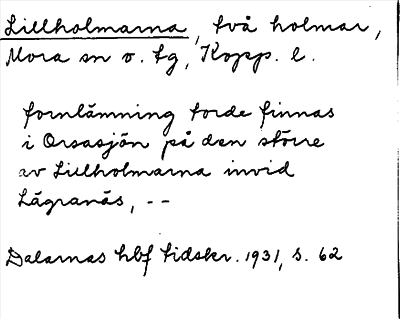 Lillholmarna, två holmar,
Mora sn o. tg, Kopp. l.
fornlämning torde finnas
i Orsasjön på den större
av Lillholmarna invid
Lägranäs, --
Dalarnas hbf tidskr. 1931, s. 62